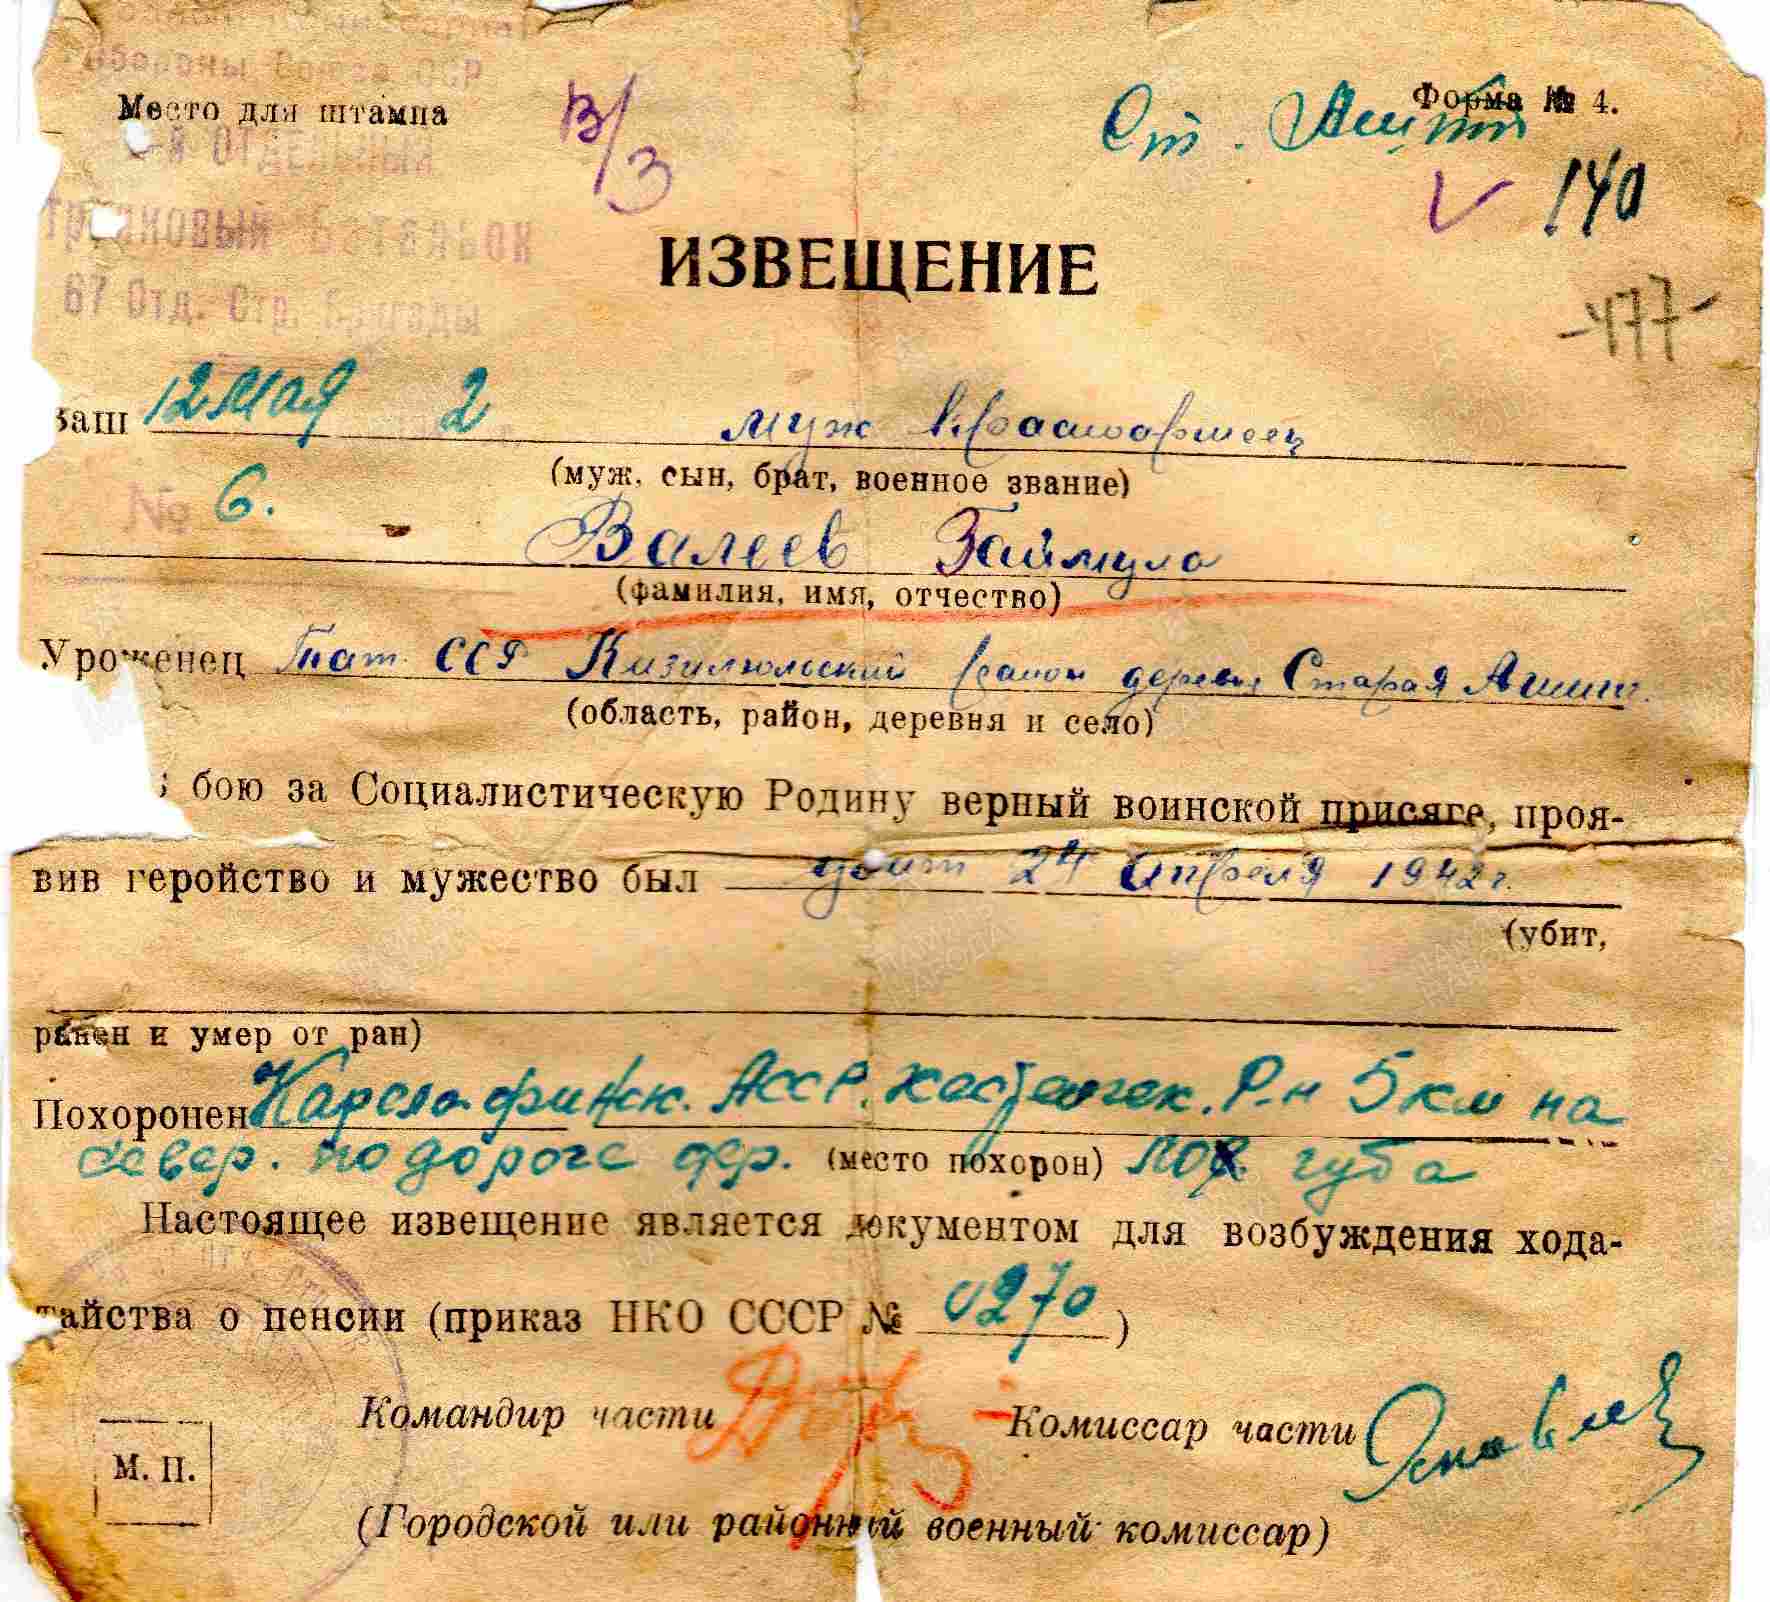 Обороны Союза ССР
Место для штампа
Форма № 4.
В/3
Ст.
140
-й ОТДЕЛЬНЫЙ
батальон
67 Отд. Стр. Бригады
ИЗВЕЩЕНИЕ
-477-
Ваш 12 мая 2 муж красноармеец
(муж, сын, брат, военное звание)
№ 6.
Валеев Гаймула
(фамилия, имя, отчество)
Уроженец Тат. ССР Кизилюльский район деревня Старая
(область, район, деревня и село)
бою за Социалистическую Родину верный воинской присяге, проя-
вив геройство и мужество был убит 24 апреля 1942 г.
(убит,
ранен и умер от ран)
Похоронен Карело-финск. АССР. Р-н 5 км на
север. по дороге дер. (место похорон) губа
Настоящее извещение является документом для возбуждения хода-
тайства о пенсии (приказ НКО СССР № 0270)
Командир части Комиссар части
М. П.
(Городской или районный военный комиссар)